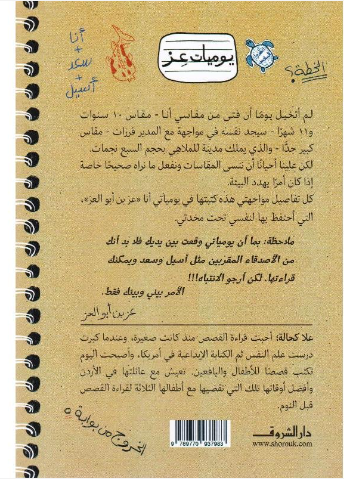 أنا
+
سعد
+
أسيل
يوميات عز
الخطة؟
لم أتخيل يومًا أن فتى من مقاسي أنا - مقاس ١٠ سنوات
و١١ شهرًا - سيجد نفسه في مواجهة مع المدير فرزات - مقاس
كبير جدًّا - والذي يملك مدينة للملاهي بحجم السبع نجمات.
لكن علينا أحيانًا أن ننسى المقاسات ونفعل ما نراه صحيحًا خاصة
إذا كان أمرًا يهدد البيئة.
كل تفاصيل مواجهتي هذه كتبتها في يومياتي أنا «عز بن أبو العز»،
التي أحتفظ بها لنفسي تحت مخدتي.
ملاحظة: بما أن يومياتي وقعت بين يديك فلا بد أنك
من الأصدقاء المقربين مثل أسيل وسعد ويمكنك
قراءتها. لكن أرجو الانتباه!!!
الأمر بيني وبينك فقط.
عز بن أبو العز
علا كحالة: أحبت قراءة القصص منذ كانت صغيرة، وعندما كبرت
درست علم النفس ثم الكتابة الإبداعية في أمريكا، وأصبحت اليوم
تكتب قصصًا للأطفال واليافعين. تعيش مع عائلتها في الأردن
وأفضل أوقاتها تلك التي تقضيها مع أطفالها الثلاثة لقراءة القصص
قبل النوم.
الخروج من بوابة ٥
دار الشروق
www.shorouk.com
9 789770 937983